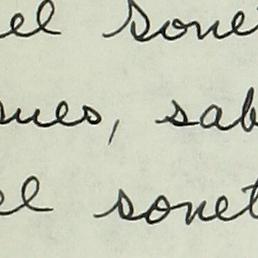 el sone
sues, sab
el sonet